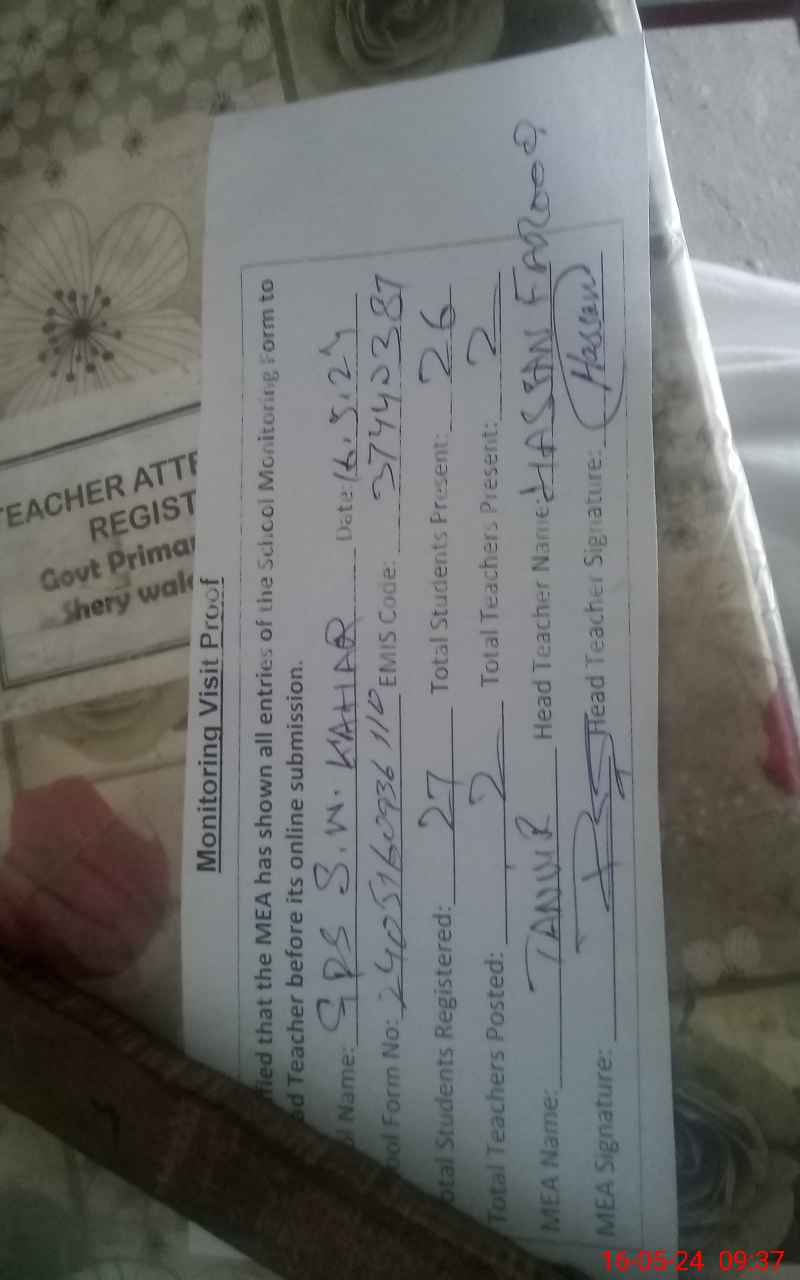 TEACHER ATTE
REGIST
Govt Primar
Shery wala
Monitoring Visit Proof
fied that the MEA has shown all entries of the School Monitoring Form to
ad Teacher before its online submission.
ol Name: GPS S.W. KAHAR Date: 16.5.24
ool Form No: 2405160936110 EMIS Code: 37440387
otal Students Registered: 27 Total Students Present: 26
Total Teachers Posted: 2 Total Teachers Present: 2
MEA Name: TANVIR Head Teacher Name: HASSAN FAROOQ
MEA Signature: Head Teacher Signature: Hassan
16-05-24 09:37